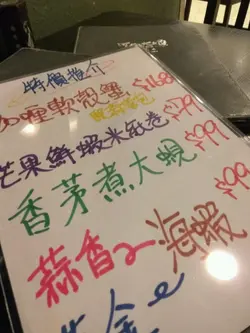 特價推介
咖喱軟殼蟹 $168
芒果鮮蝦米紙卷 $79
香茅煮大蜆 $99
蒜香海蝦 $99